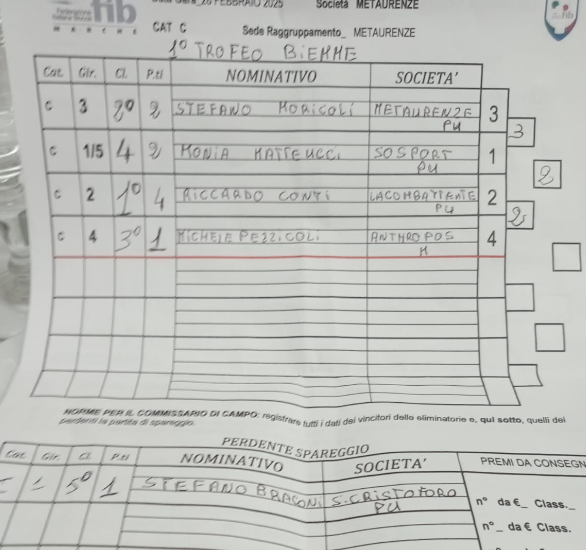 fib
MARCHE
20 FEBBRAIO 2025 Società METAURENZE
CAT C Sede Raggruppamento_ METAURENZE
1° TROFEO BIEMME
Cat. Gir. Cl. P.ti NOMINATIVO SOCIETA'
C 3 2° 2 STEFANO MORICOLI METAURENZE PU 3
3
C 1/5 4 2 MONIA MATTEUCCI SOSPORT PU 1
2
C 2 1° 4 RICCARDO CONTI LACOMBATTENTE PU 2
2
C 4 3° 1 MICHELE PEZZICOLI ANTHROPOS M 4
NORME PER IL COMMISSARIO DI CAMPO: registrare tutti i dati dei vincitori delle eliminatorie e, qui sotto, quelli dei
perdenti la partita di spareggio.
PERDENTE SPAREGGIO
Cat. Gir. Cl. P.ti NOMINATIVO SOCIETA' PREMI DA CONSEGN
1 5° 1 STEFANO BRACONI S.CRISTOFORO PU
n° da €_ Class._
n°_ da € Class.